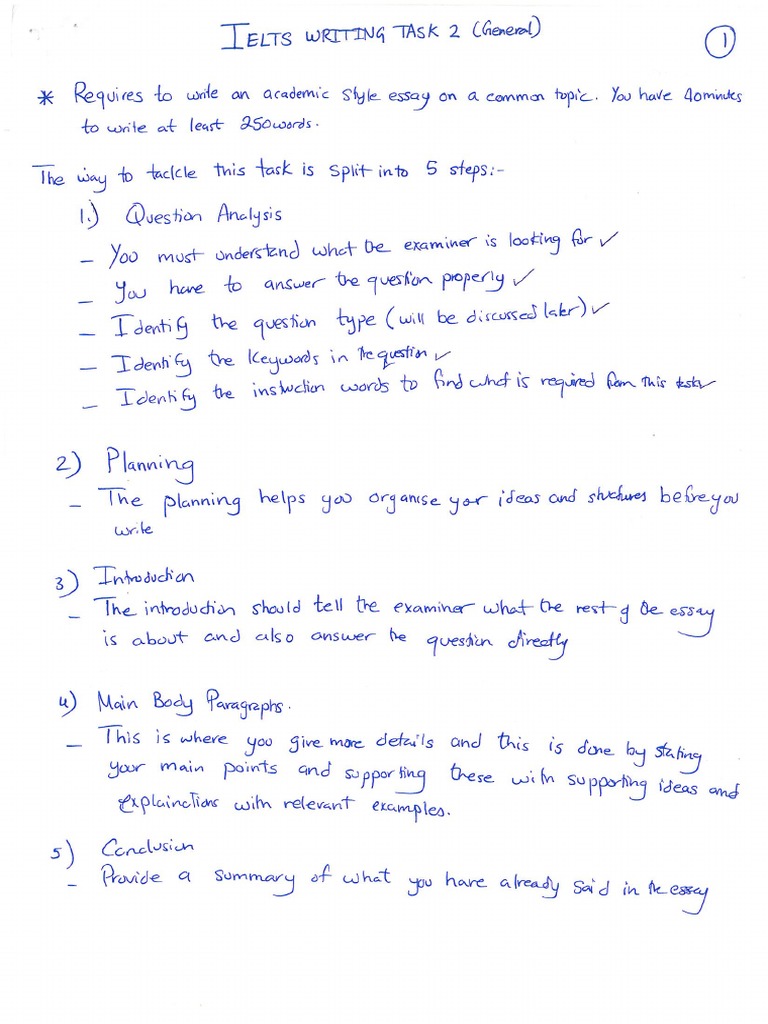 IELTS WRITING TASK 2 (General)
1
* Requires to write an academic style essay on a common topic. You have 40minutes
to write at least 250words.
The way to tackle this task is split into 5 steps:-
1.) Question Analysis
- You must understand what the examiner is looking for ✓
- You have to answer the question properly ✓
- Identify the question type (will be discussed later) ✓
- Identify the keywords in the question ✓
- Identify the instruction words to find what is required from this task ✓
2) Planning
- The planning helps you organise your ideas and structures before you
write
3) Introduction
- The introduction should tell the examiner what the rest of the essay
is about and also answer the question directly
4) Main Body Paragraphs.
- This is where you give more details and this is done by stating
your main points and supporting these with supporting ideas and
explainations with relevant examples.
5) Conclusion
- Provide a summary of what you have already said in the essay